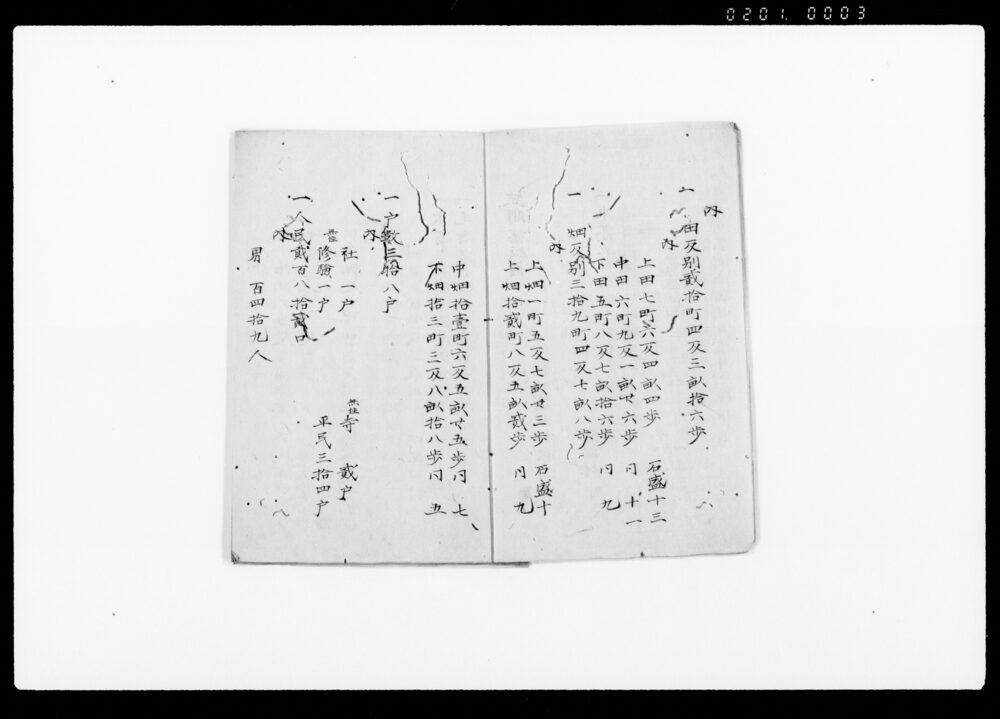 0201.0003
内
一 田反別貳拾町四反三畝拾六歩
内
上田七町六反四畝四歩 石盛十三
中田六町九反一畝廿六歩 同 十一
下田五町八反七畝拾六歩 同 九
一 畑反別三拾九町四反七畝八歩
内
上々畑一町五反七畝廿三歩 石盛十
上畑拾貳町八反五畝貳歩 同 九
中畑拾壹町六反五畝廿五歩 同 七
下畑拾三町三反八畝拾八歩 同 五
一 户数三拾八户
内
社 一户 無住寺 貳户
修驗一户 平民三拾四户
一 人民貳百八拾貳口
内
男 百四拾九人